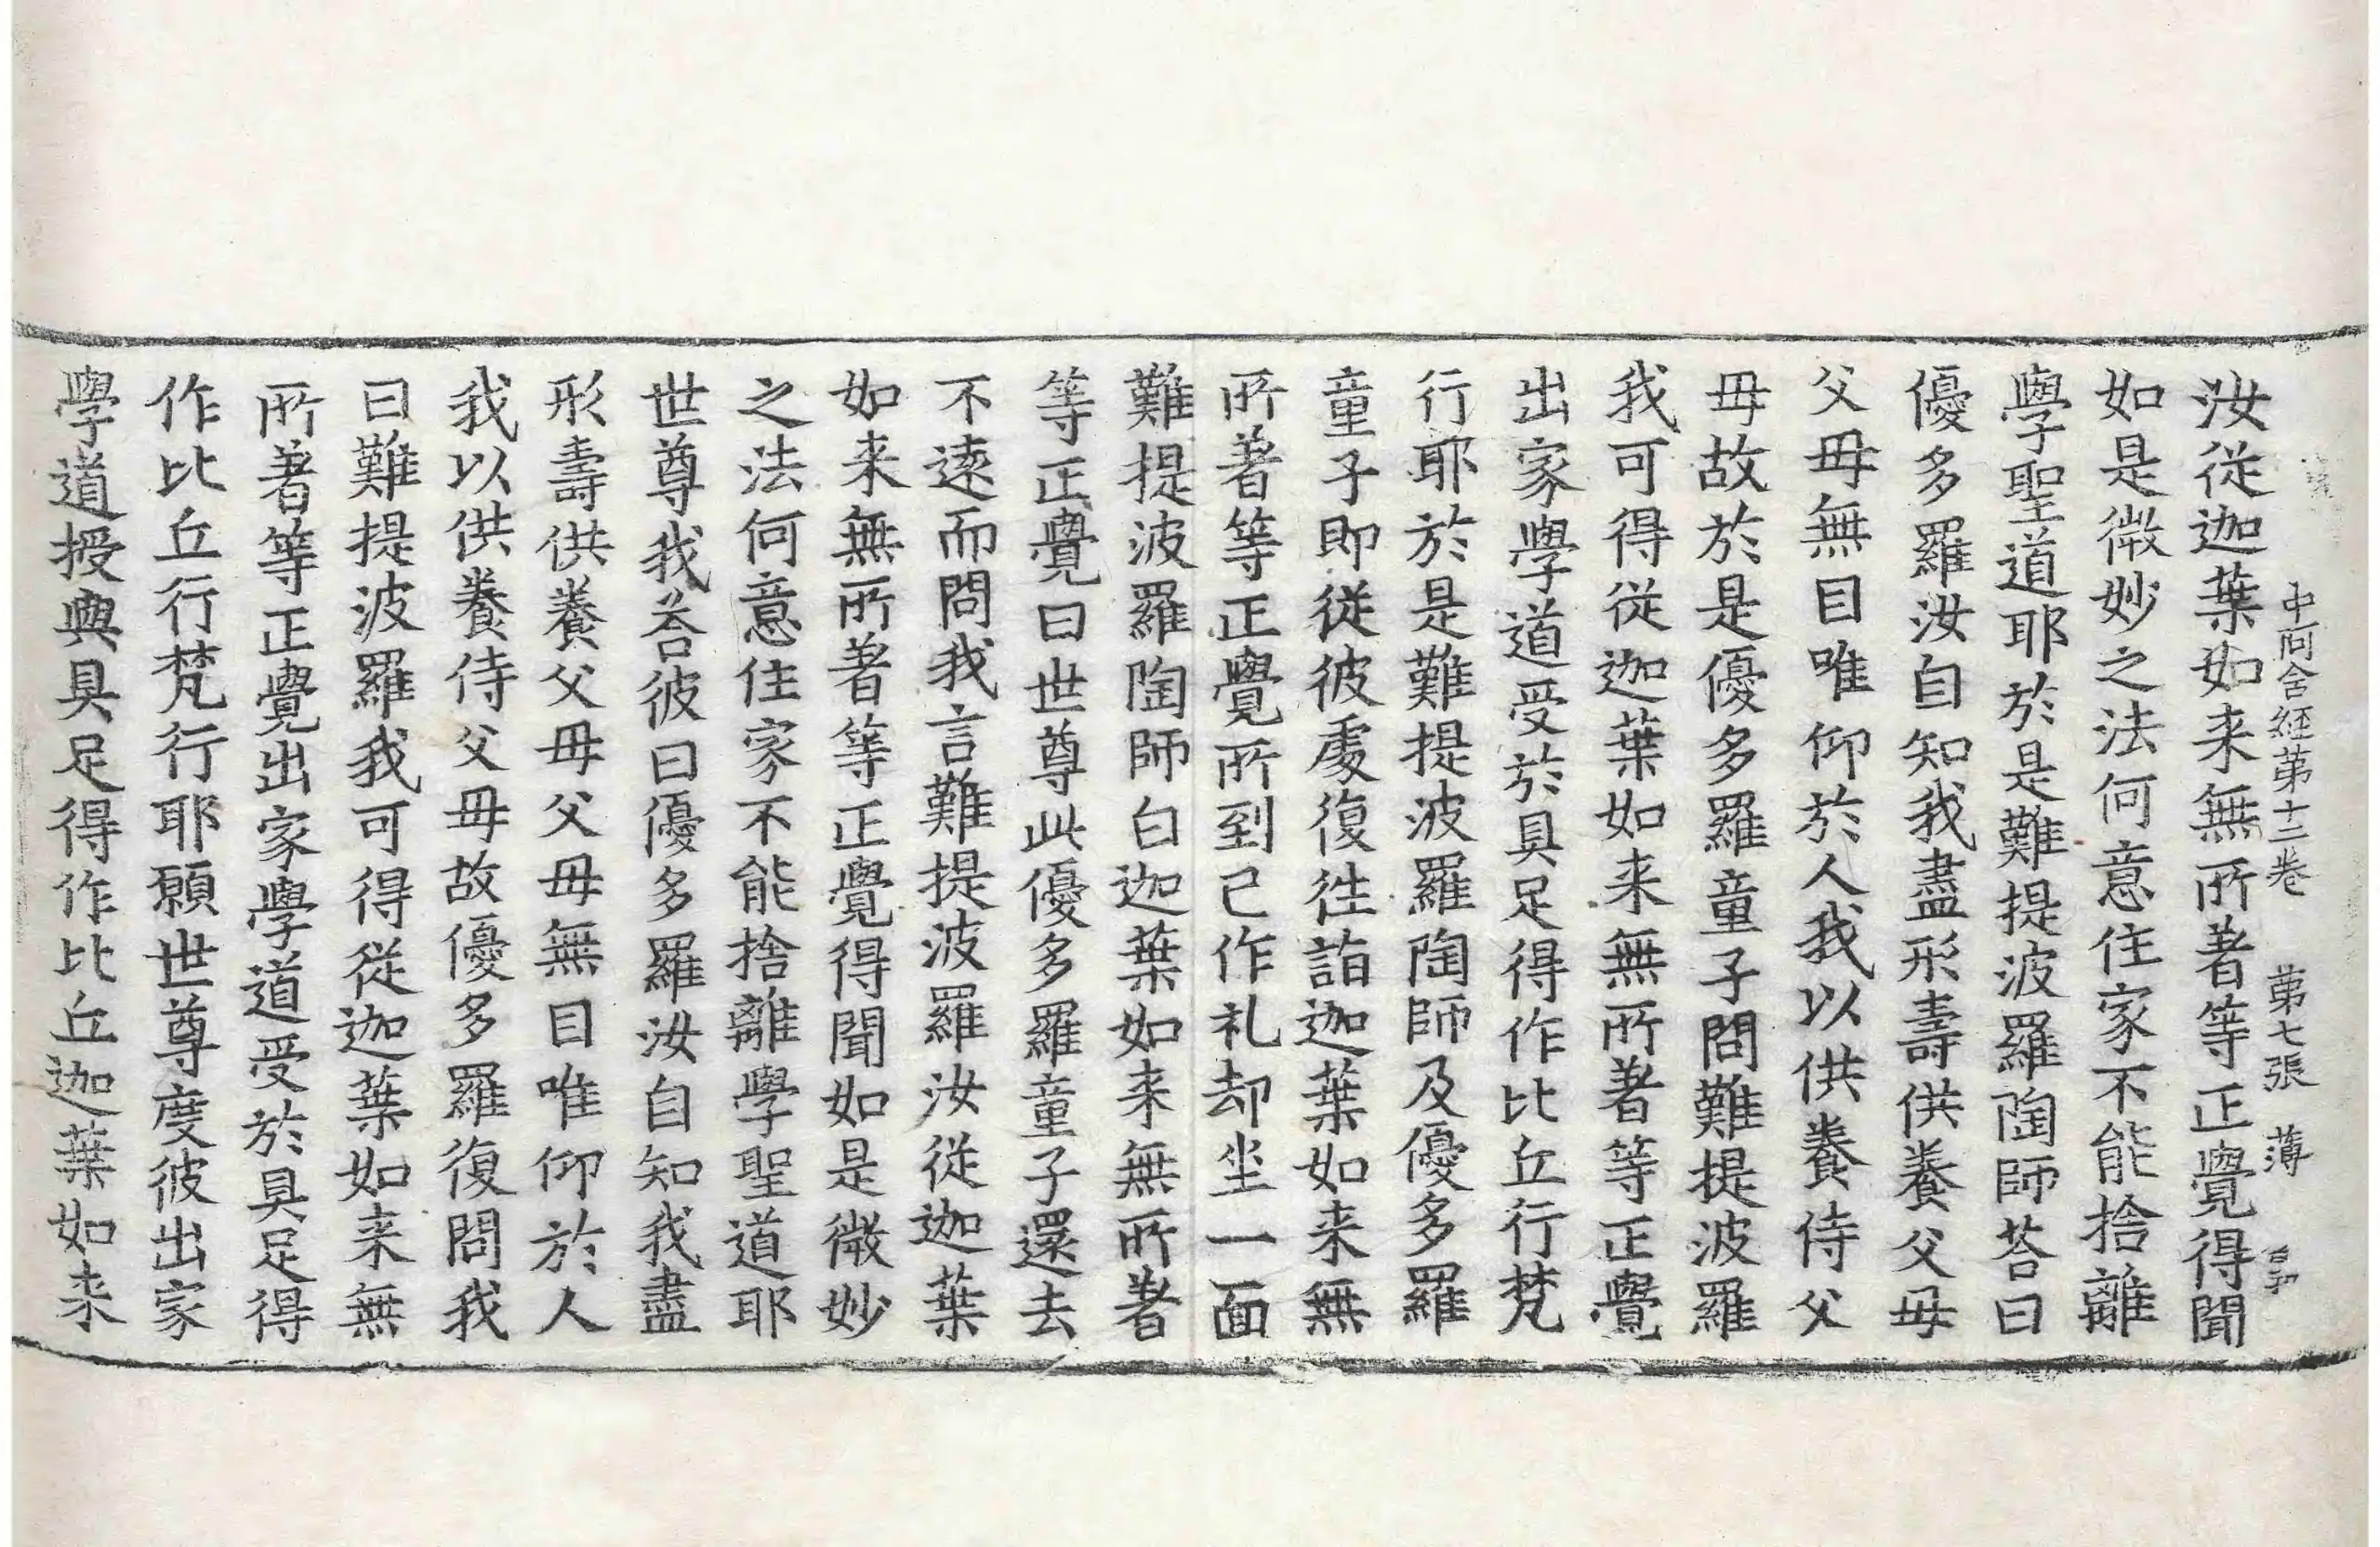 中阿含経苐十二卷 苐七張 薄
汝從迦葉如来無所著等正覺得聞
如是微妙之法何意住家不能捨離
學聖道耶於是難提波羅陶師荅曰
優多羅汝自知我盡形壽供養父母
父母無目唯仰於人我以供養侍父
母故於是優多羅童子問難提波羅
我可得從迦葉如来無所著等正覺
出家學道受於具足得作比丘行梵
行耶於是難提波羅陶師及優多羅
童子即從彼處復往詣迦葉如来無
所著等正覺所到已作礼却坐一面
難提波羅陶師白迦葉如来無所著
等正覺曰世尊此優多羅童子還去
不遠而問我言難提波羅汝從迦葉
如来無所著等正覺得聞如是微妙
之法何意住家不能捨離學聖道耶
世尊我荅彼曰優多羅汝自知我盡
形壽供養父母父母無目唯仰於人
我以供養侍父母故優多羅復問我
曰難提波羅我可得從迦葉如来無
所著等正覺出家學道受於具足得
作比丘行梵行耶願世尊度彼出家
學道授與具足得作比丘迦葉如来